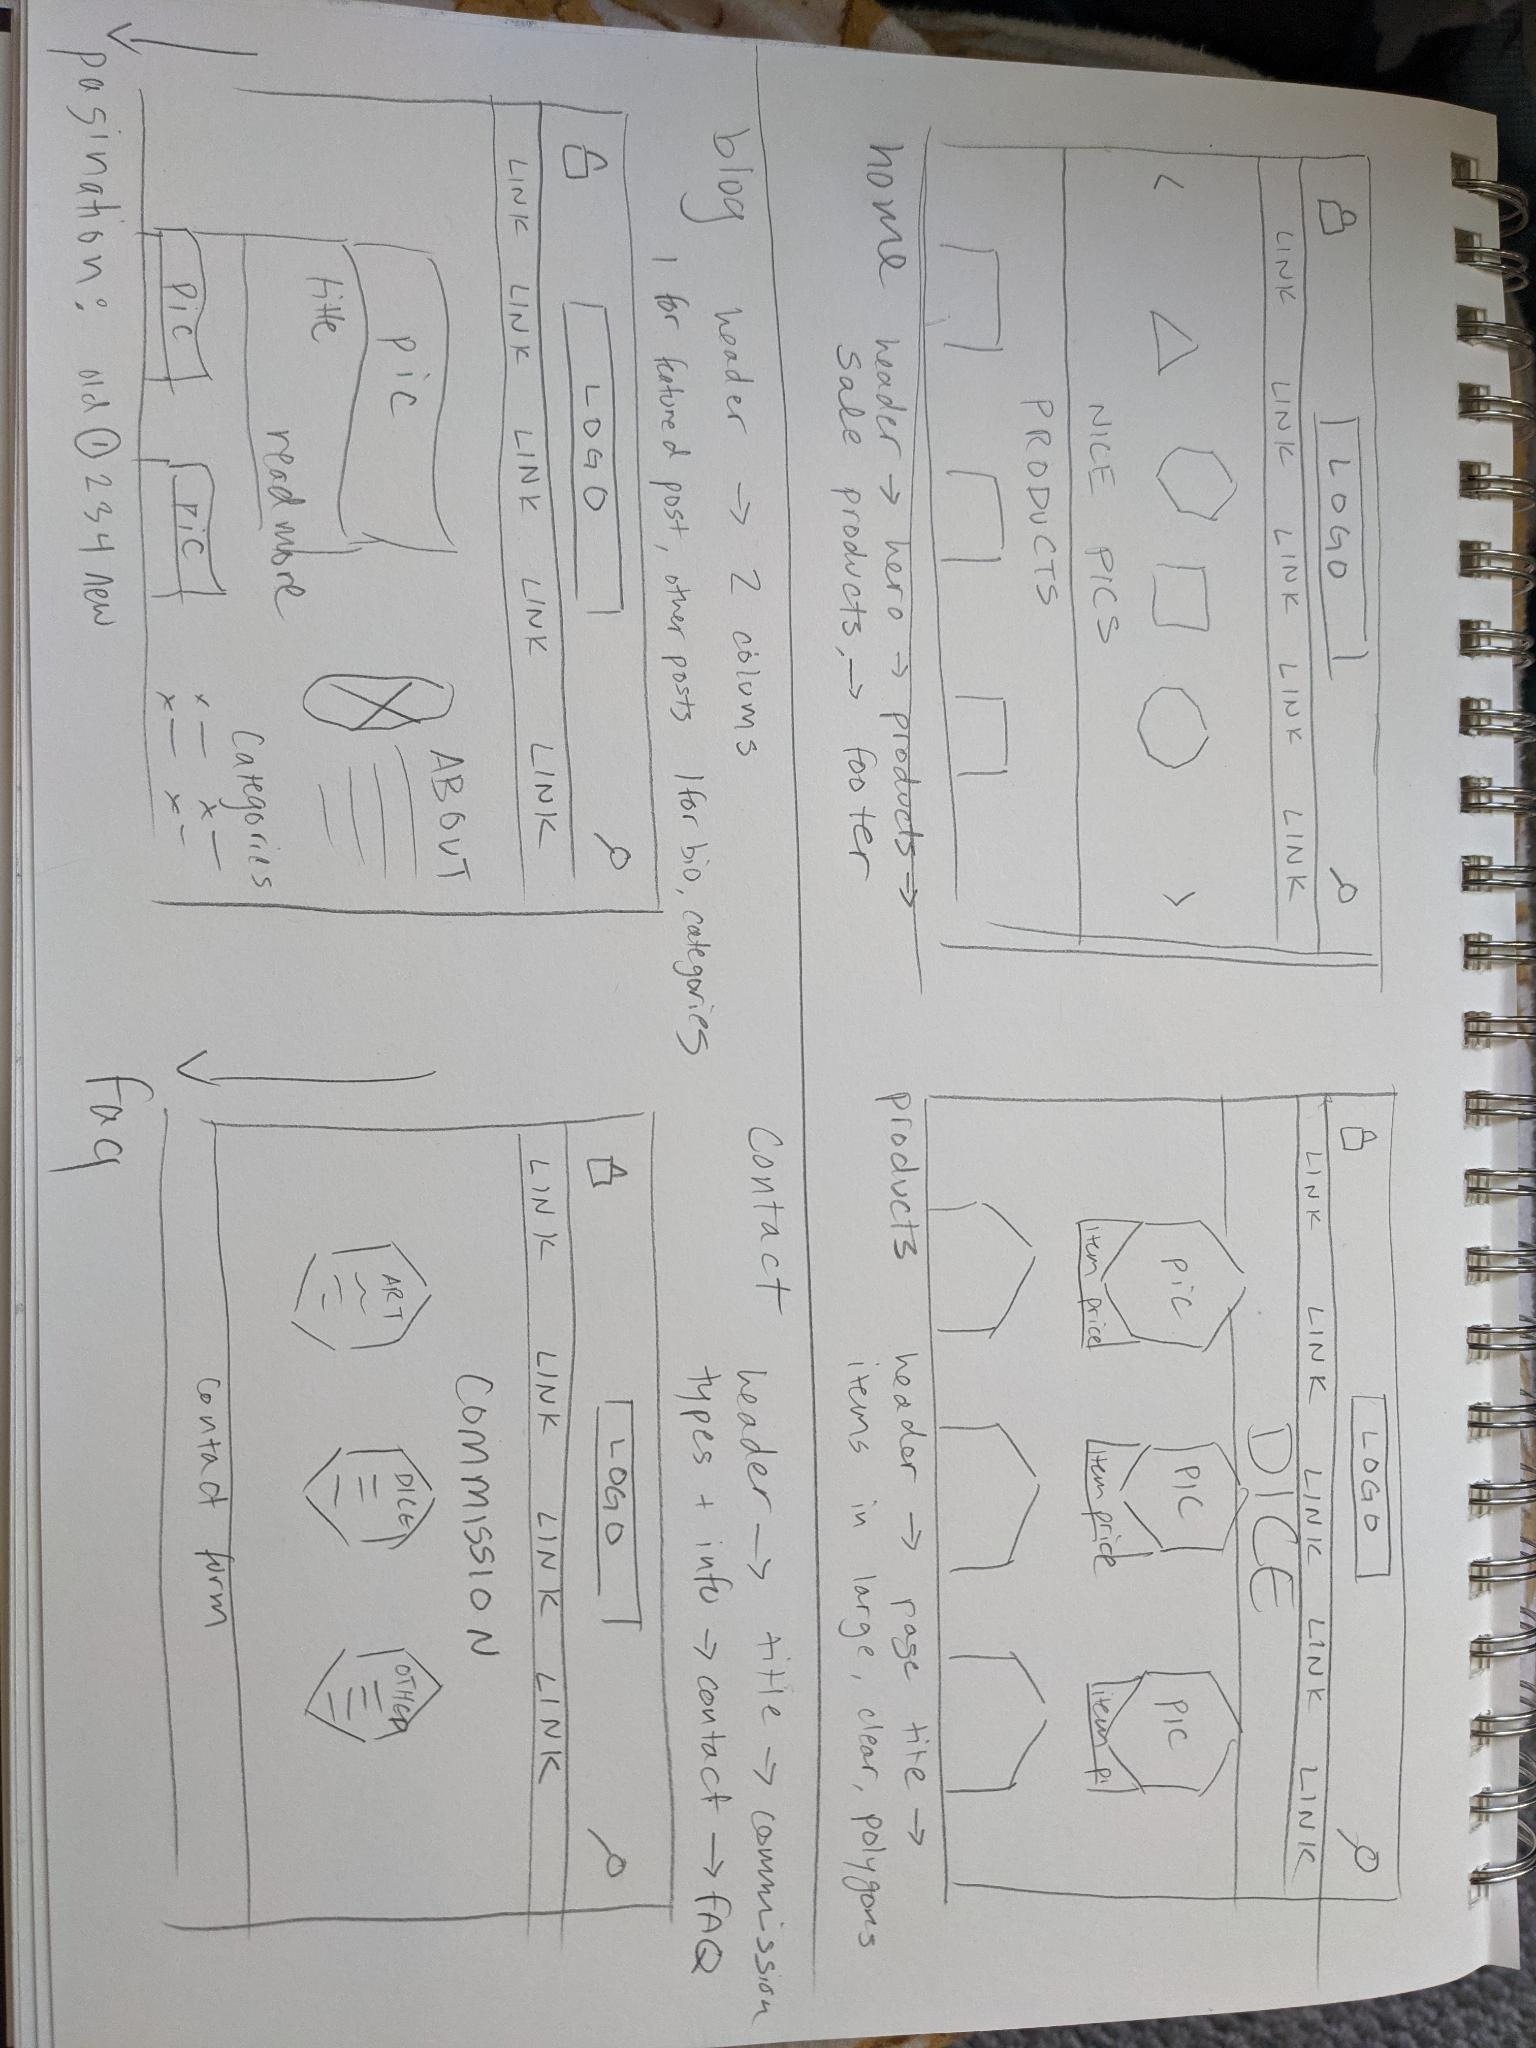 LOGO
LINK LINK LINK LINK LINK
NICE PICS
PRODUCTS
home header → hero → products →
sale products, → footer
LOGO
LINK LINK LINK LINK LINK
DICE
pic PIC PIC
item price item price item pi
products header → page title →
items in large, clear, polygons
blog header → 2 colums
1 for featured post, other posts 1 for bio, categories
LOGO
LINK LINK LINK LINK LINK
pic
title
read more
ABOUT
Categories
x — x —
x — x –
PIC PIC
pagination: old ① 2 3 4 new
Contact header → title → commission
types + info → contact → FAQ
LOGO
LINK LINK LINK LINK
COMMISSION
ART DICE OTHER
contact form
faq